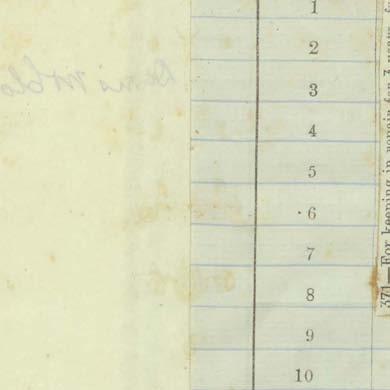 1
2
3
4
5
6
7
8
9
10
371—For keeping in repair for 3 years, fr